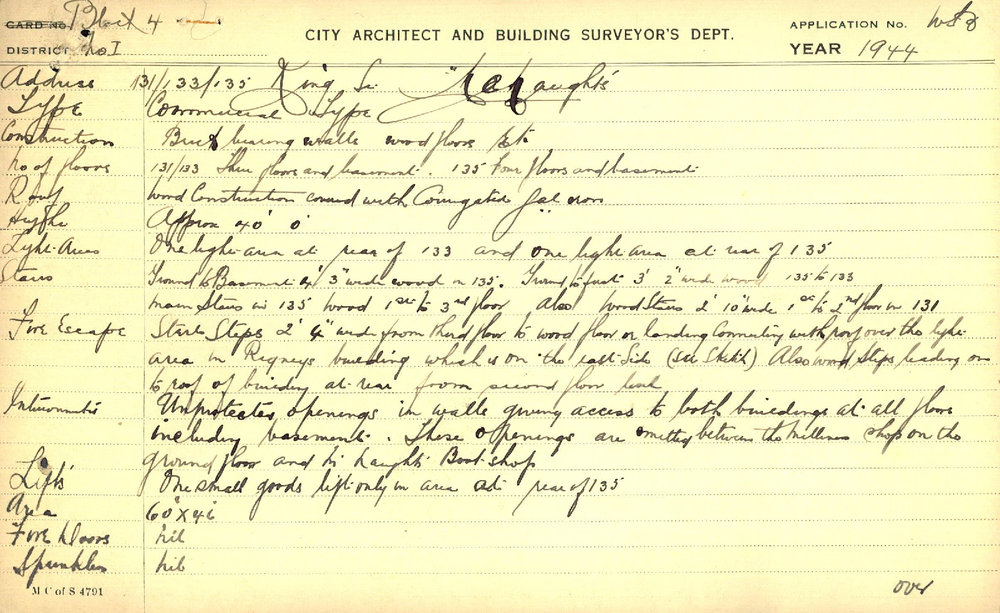 CARD No. Block 4
DISTRICT No I
CITY ARCHITECT AND BUILDING SURVEYOR'S DEPT.
APPLICATION No.
YEAR 1944
Address 131/133/135 King St.
Type Commercial Type
Construction Brick bearing walls wood floors etc.
No of floors 131/133 Three floors and basement. 135 Four floors and basement
Roof Wood Construction covered with Corrugated Gal iron
Approx 40' 0"
Light Areas One light area at rear of 133 and one light area at rear of 135
Stairs Ground to Basement 4' 3" wide wood in 135. Ground to first 3' 2" wide wood 135 to 133
main Stairs in 135 wood 1st to 3rd floor Also Wood Stairs 2' 10" wide 1st to 2nd floor in 131
Fire Escape Steps 2' 4" wide from third floor to wood floor or landing Connecting with roof over the light
area in Rigneys building which is on the east Side (see Sketch) Also wood Steps leading on
to roof of building at rear from second floor level
Unprotected openings in walls giving access to both buildings at all floors
including basement. These openings are between the milliners shop on the
ground floor and Mc Naughts Boot shop
Lifts One small goods lift only in area at rear of 135
Area 60' X 46'
Fire Doors Nil
Sprinklers Nil
M C of S 4791
over